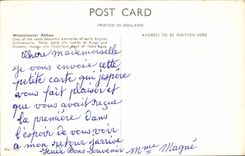 POST CARD
PRINTED IN ENGLAND
Westminster Abbey.
ADDRESS TO BE WRITTEN HERE
One of the most beautiful examples of early English
architecture. Here, amid the tombs of Kings and
Queens, repose the illustrious dead of many ages.
Chère mademoiselle
je vous envoie cette
petite carte qui j'espère
vous fait plaisir et
que vous avait reçue
la première dans
l'espoir de vous voir
a mon retour
Bons Souvenir Mme Magné